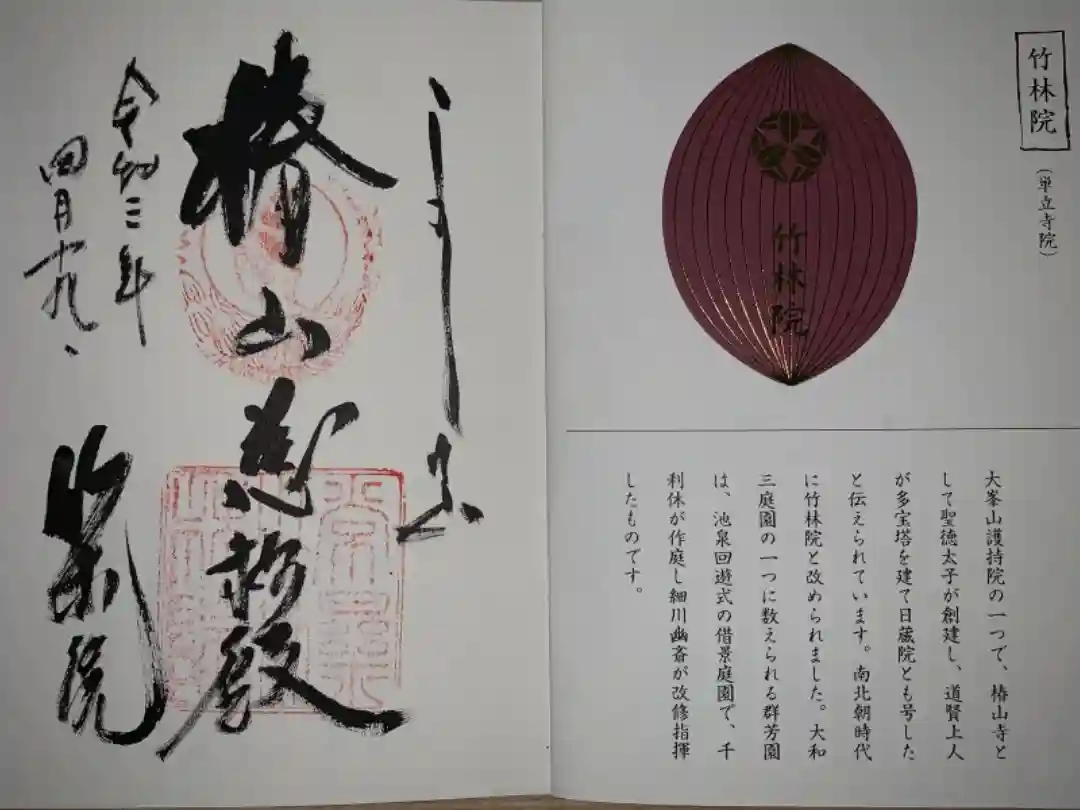 竹林院
(単立寺院)
竹林院
大峯山護持院の一つで、椿山寺と
して聖徳太子が創建し、道賢上人
が多宝塔を建て日蔵院とも号した
と伝えられています。南北朝時代
に竹林院と改められました。大和
三庭園の一つに数えられる群芳園
は、池泉回遊式の借景庭園で、千
利休が作庭し細川幽斎が改修指揮
したものです。
椿山
殿
令和三年
四月十九日
竹林院